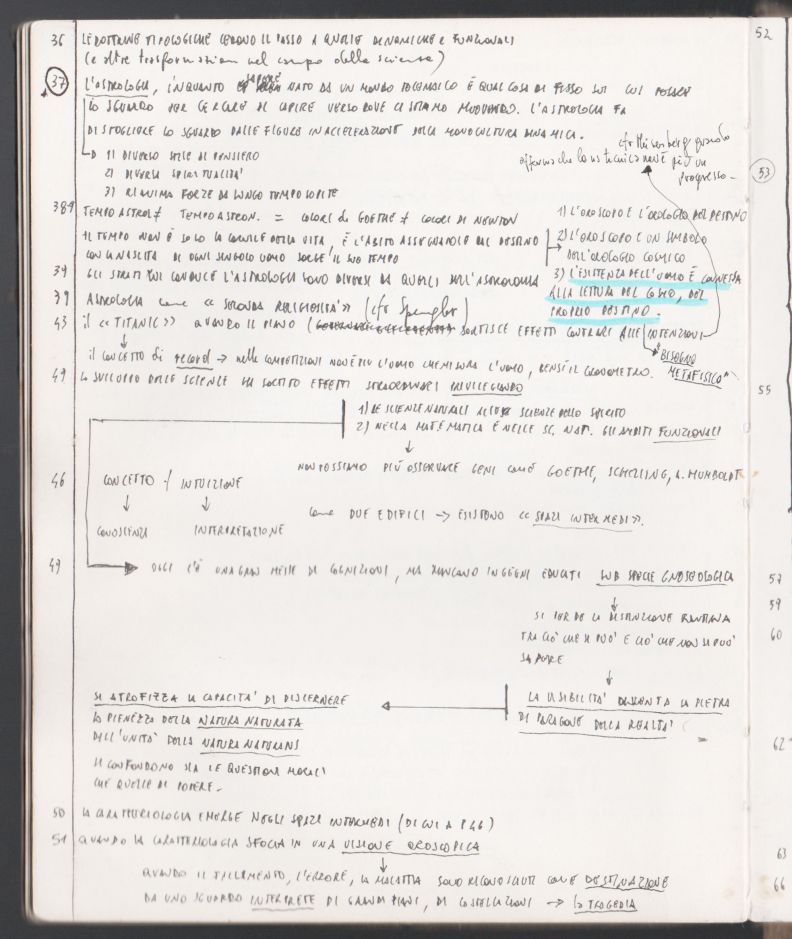 36 LE DOTTRINE TIPOLOGICHE CEDONO IL PASSO A QUELLE DINAMICHE E FUNZIONALI
(e altre trasformazioni nel campo della scienza)
37 L'ASTROLOGIA, IN QUANTO SAPERE NATO DA UN MONDO TOLEMAICO È QUALCOSA DI FISSO SUL CUI POSARE
LO SGUARDO PER CERCARE DI CAPIRE VERSO DOVE CI STIAMO MUOVENDO. L'ASTROLOGIA FA
DISTOGLIERE LO SGUARDO DALLE FIGURE IN ACCELERAZIONE DELLA MONOCULTURA DINAMICA.
cfr Heisenberg quando
afferma che la tecnica non è più un
progresso -
1) DIVERSO STILE DI PENSIERO
2) DIVERSA SPIRITUALITÀ
3) RIANIMA FORZE DA LUNGO TEMPO SOPITE
38 TEMPO ASTROL ≠ TEMPO ASTRON. = COLORI di GOETHE ≠ COLORI DI NEWTON
IL TEMPO NON È SOLO LA DELLA VITA, È L'ABITO ASSEGNATOLE DAL DESTINO
CON LA NASCITA DI OGNI SINGOLO UOMO SORGE IL SUO TEMPO
1) L'OROSCOPO È L'OROLOGIO DEL DESTINO
2) L'OROSCOPO È UN SIMBOLO
DELL'OROLOGIO COSMICO
3) L'ESISTENZA DELL'UOMO È CONNESSA
ALLA LETTURA DEL COSMO, DEL
PROPRIO DESTINO.
39 GLI STRATI CUI CONDUCE L'ASTROLOGIA SONO DIVERSI DA QUELLI DELL'ASTRONOMIA
39 ASTROLOGIA come << SECONDA RELIGIOSITÀ >> (cfr Spengler)
43 il << TITANIC >> QUANDO IL PIANO SORTISCE EFFETTI CONTRARI ALLE INTENZIONI
↓
il CONCETTO di record → nelle COMPETIZIONI NON È PIÙ L'UOMO CHE MISURA L'UOMO, BENSÌ IL CRONOMETRO.
BISOGNO
METAFISICO"
49 LO SVILUPPO DELLE SCIENZE HA SORTITO EFFETTI STRAORDINARI PRIVILEGIANDO
1) LE SCIENZE NATURALI ALLE SCIENZE DELLO SPIRITO
2) NELLA MATEMATICA E NELLE SC. NAT. GLI AMBITI FUNZIONALI
↓
NON POSSIAMO PIÙ OSSERVARE GENI COME GOETHE, SCHELLING, A. HUMBOLDT
46 CONCETTO ≠ INTUIZIONE
↓ ↓
CONOSCENZA INTERPRETAZIONE
come DUE EDIFICI → ESISTONO << SPAZI INTERMEDI >>.
49 OGGI C'È UNA GRAN MESSE DI COGNIZIONI, MA MANCANO INGEGNI EDUCATI SUB SPECIE GNOSEOLOGICA
↓
SI PERDE LA DISTINZIONE KANTIANA
TRA CIÒ CHE SI PUÒ E CIÒ CHE NON SI PUÒ
SAPERE
↓
LA VISIBILITÀ DIVENTA LA PIETRA
DI PARAGONE DELLA REALTÀ
SI ATROFIZZA LA CAPACITÀ DI DISCERNERE
LA PIENEZZA DELLA NATURA NATURATA
DALL'UNITÀ DELLA NATURA NATURANS
SI CONFONDONO SIA LE QUESTIONI MORALI
CHE QUELLE DI POTERE.
50 LA CARATTERIOLOGIA EMERGE NEGLI SPAZI INTERMEDI (DI CUI A P46)
51 QUANDO LA CARATTERIOLOGIA SFOCIA IN UNA VISIONE OROSCOPICA
↓
QUANDO IL FALLIMENTO, L'ERRORE, LA MALATTIA SONO RICONOSCIUTI COME DESTINAZIONE
DA UNO SGUARDO INTERPRETE DI GRANDI PIANI, DI COSTELLAZIONI → la TRAGEDIA
52
53
55
57
59
60
62
63
66